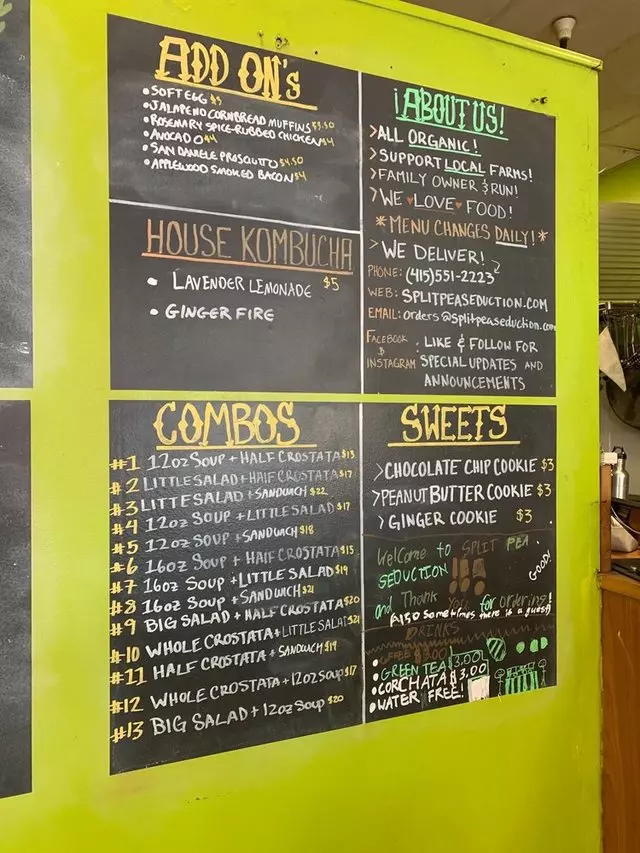 ADD ON's
•SOFT EGG $3
•JALAPENO CORNBREAD MUFFINS $3.50
•ROSEMARY SPICE-RUBBED CHICKEN $4
•AVOCADO $4
•SAN DANIELE PROSCIUTTO $4.50
•APPLEWOOD SMOKED BACON $4
HOUSE KOMBUCHA
• LAVENDER LEMONADE $5
• GINGER FIRE
¡ABOUT US!
>ALL ORGANIC!
>SUPPORT LOCAL FARMS!
>FAMILY OWNER & RUN!
>WE ♥LOVE♥ FOOD!
*MENU CHANGES DAILY!*
>WE DELIVER!
PHONE: (415)551-2223
WEB: SPLITPEASEDUCTION.COM
EMAIL: orders@splitpeaseduction.com
FACEBOOK & INSTAGRAM : LIKE & FOLLOW FOR
SPECIAL UPDATES AND
ANNOUNCEMENTS
COMBOS
#1 12oz SOUP + HALF CROSTATA $13
#2 LITTLE SALAD + HALF CROSTATA $17
#3 LITTLE SALAD + SANDWICH $22
#4 12oz SOUP + LITTLE SALAD $17
#5 12oz SOUP + SANDWICH $18
#6 16oz SOUP + HALF CROSTATA $15
#7 16oz SOUP + LITTLE SALAD $19
#8 16oz SOUP + SANDWICH $21
#9 BIG SALAD + HALF CROSTATA $20
#10 WHOLE CROSTATA + LITTLE SALAD $21
#11 HALF CROSTATA + SANDWICH $19
#12 WHOLE CROSTATA + 12oz SOUP $17
#13 BIG SALAD + 12oz SOUP $20
SWEETS
>CHOCOLATE CHIP COOKIE $3
>PEANUT BUTTER COOKIE $3
>GINGER COOKIE $3
Welcome to SPLIT PEA
SEDUCTION
GOOD!
and Thank you for ordering!
Also Sometimes there is a guest
DRINKS
•COFFEE $3.00
•GREEN TEA $3,00
•CORCHATA $3,00
•WATER FREE!